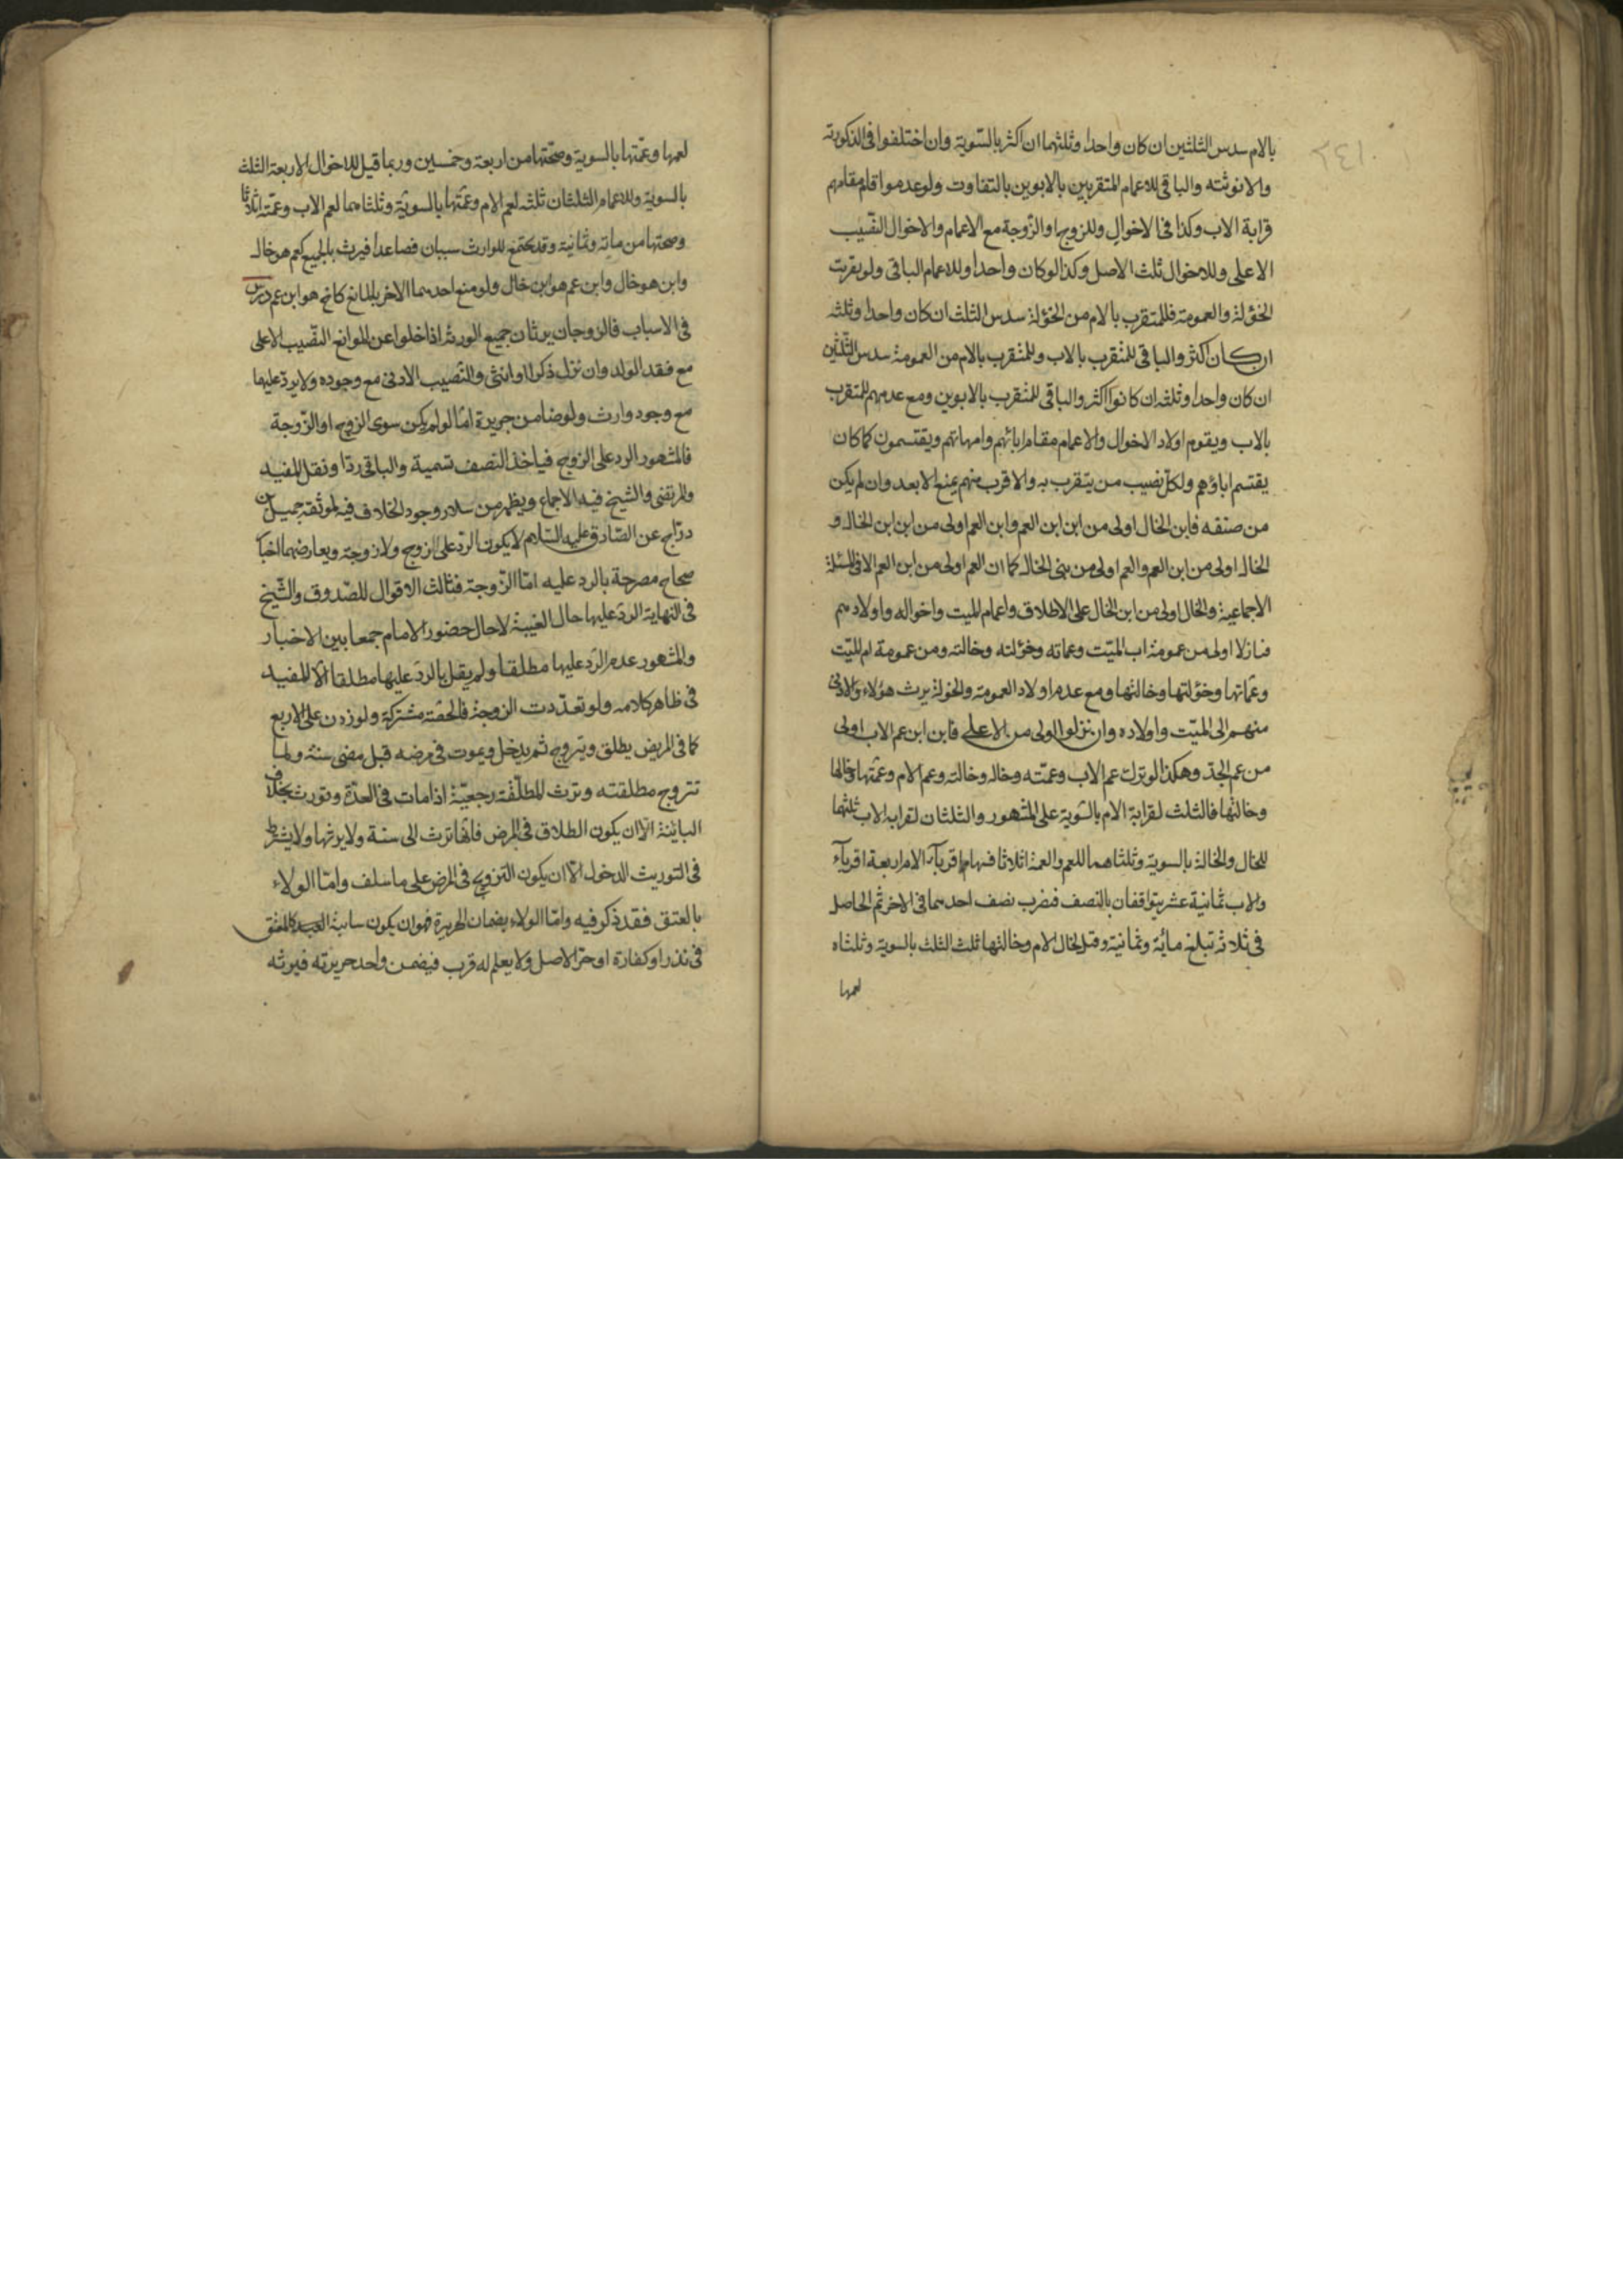 ٢٤١
بالام سدس الثلثين ان كان واحدا وثلثهما ان اكثر بالسّوية وان اختلفوا فى الذكورته
والانوثته والباقى للاعمام المتقربين بالابوين بالتفاوت ولو عدموا قام مقامهم
قرابة الاب وكذا فى الاخوال وللزوج او الزّوجة مع الاعمام والاخوال النّصيب
الاعلى وللاخوال ثلث الاصل وكذا لو كان واحدا وللاعمام الباقى ولو تفرقت
الخؤلة والعمومة فللمتقرب بالام من الخؤلة سدس الثلث ان كان واحدا وثلثه
ان كان اكثر والباقى للمتقرب بالاب وللمتقرب بالام من العمومة سدس الثّلثين
ان كان واحدا وثلثه ان كانوا اكثر والباقى للمتقرب بالابوين ومع عدمهم للمتقرب
بالاب ويقوم اولاد الاخوال والاعمام مقام ابائهم وامهاتهم ويقتسمون كما كان
يقتسم اباؤهم ولكل نصيب من يتقرب به والاقرب منهم يمنع الابعد وان لم يكن
من صنفه فابن الخال اولى من ابن ابن العم وابن العم اولى من ابن ابن الخال و
الخال اولى من ابن العم والعم اولى من بنى الخال كما ان العم اولى من ابن العم الا فى المسئلة
الاجماعية والخال اولى من ابن الخال على الاطلاق واعمام الميت واخواله واولادهم
فنازلا اولى من عمومة اب الميّت وعماته وخؤلته وخالته ومن عمومة ام الميّت
وعمّاتها وخؤلتها وخالتها ومع عدم اولاد العمومة والخولة يرث هؤلاء والادنى
منهم الى الميّت واولاده وان نزلوا اولى من الاعلى فابن ابن عم الاب اولى
من عم الجدّ وهكذا لو ترك عم الاب وعمّته وخاله وخالته وعم الام وعمّتها وخالها
وخالتها فالثلث لقرابة الام بالسّوية على المشهور والثلثان لقرابه الاب ثلثهما
للخال والخالة بالسوية وثلثاهما للعم والعمة اثلاثا فسهام اقربآء الام اربعة اقربآء
والاب ثمانية عشر يتوافقان بالنصف فنضرب نصف احدهما فى الاخر ثم الحاصل
فى ثلاثه تبلغ مائة وثمانية وقيل لخال الام وخالتها ثلث الثلث بالسوية وثلثاه
لعمها
لعمها وعمّتها بالسوية وصحّتها من اربعة وخمسين وربما قيل للاخوال الاربعة الثلث
بالسوية وللاعمام الثلثان ثلثه لعم الام وعمّتها بالسويّة وثلثاهما لعم الاب وعمّته اثلاثا
وصحتها من مائة وثمانية وقد يجتمع للوارث سببان فصاعدا فيرث بالجميع كعم هو خال
وابن هو خال وابن عم هو ابن خال ولو منع احدهما الاخر بالمانع كاخ هو ابن عم درس
فى الاسباب فالزوجان يرثان جميع الورثة اذا خلوا عن الموانع النّصيب الاعلى
مع فقد الولد وان نزل ذكرا او انثى والنّصيب الادنى مع وجوده ولا يردّ عليها
مع وجود وارث ولو ضامن جريرة امّا لو لم يكن سوى الزوج او الزّوجة
فالمشهور الرد على الزوج فياخذ النصف تسمية والباقى ردّا ونقل المفيد
والمرتضى والشيخ فيه الاجماع ويظهر من سلار وجود الخلاف فيه لموثقة جميل بن
درّاج عن الصّادق عليه السّلام لا يكون الردّ على زوج ولا زوجة ويعارضهما اخبا
صحاح مصرحة بالرد عليه امّا الزّوجة فثالث الاقوال للصّدوق والشّيخ
فى النهاية الردّ عليها حال الغيبة لا حال حضور الامام جمعا بين الاخبار
والمشهور عدم الرّد عليها مطلقا ولم يقل بالردّ عليها مطلقا الّا المفيد
فى ظاهر كلامه ولو تعدّدت الزوجة فالحصّة مشتركة ولو زدن على الاربع
كما فى المريض يطلق ويتزوج ثم يدخل ويموت فى مرضه قبل مضى سنة ولما
تتزوج مطلقته وترث المطلّقة رجعيّة اذا مات فى العدّة وتورث بخلاف
البائنة الّا ان يكون الطلاق فى المرض فانّها ترث الى سنة ولا يرثها ولا يشترط
فى التوريث الدخول الّا ان يكون التزويج فى المرض على ما سلف وامّا الولاء
بالعتق فقد ذكر فيه وامّا الولاء بضمان الجريرة فهو ان يكون سائبة العبد كالمعتق
فى نذر او كفارة او حرّ الاصل ولا يعلم له قرب فيضمن واحد جريرته فيرثه